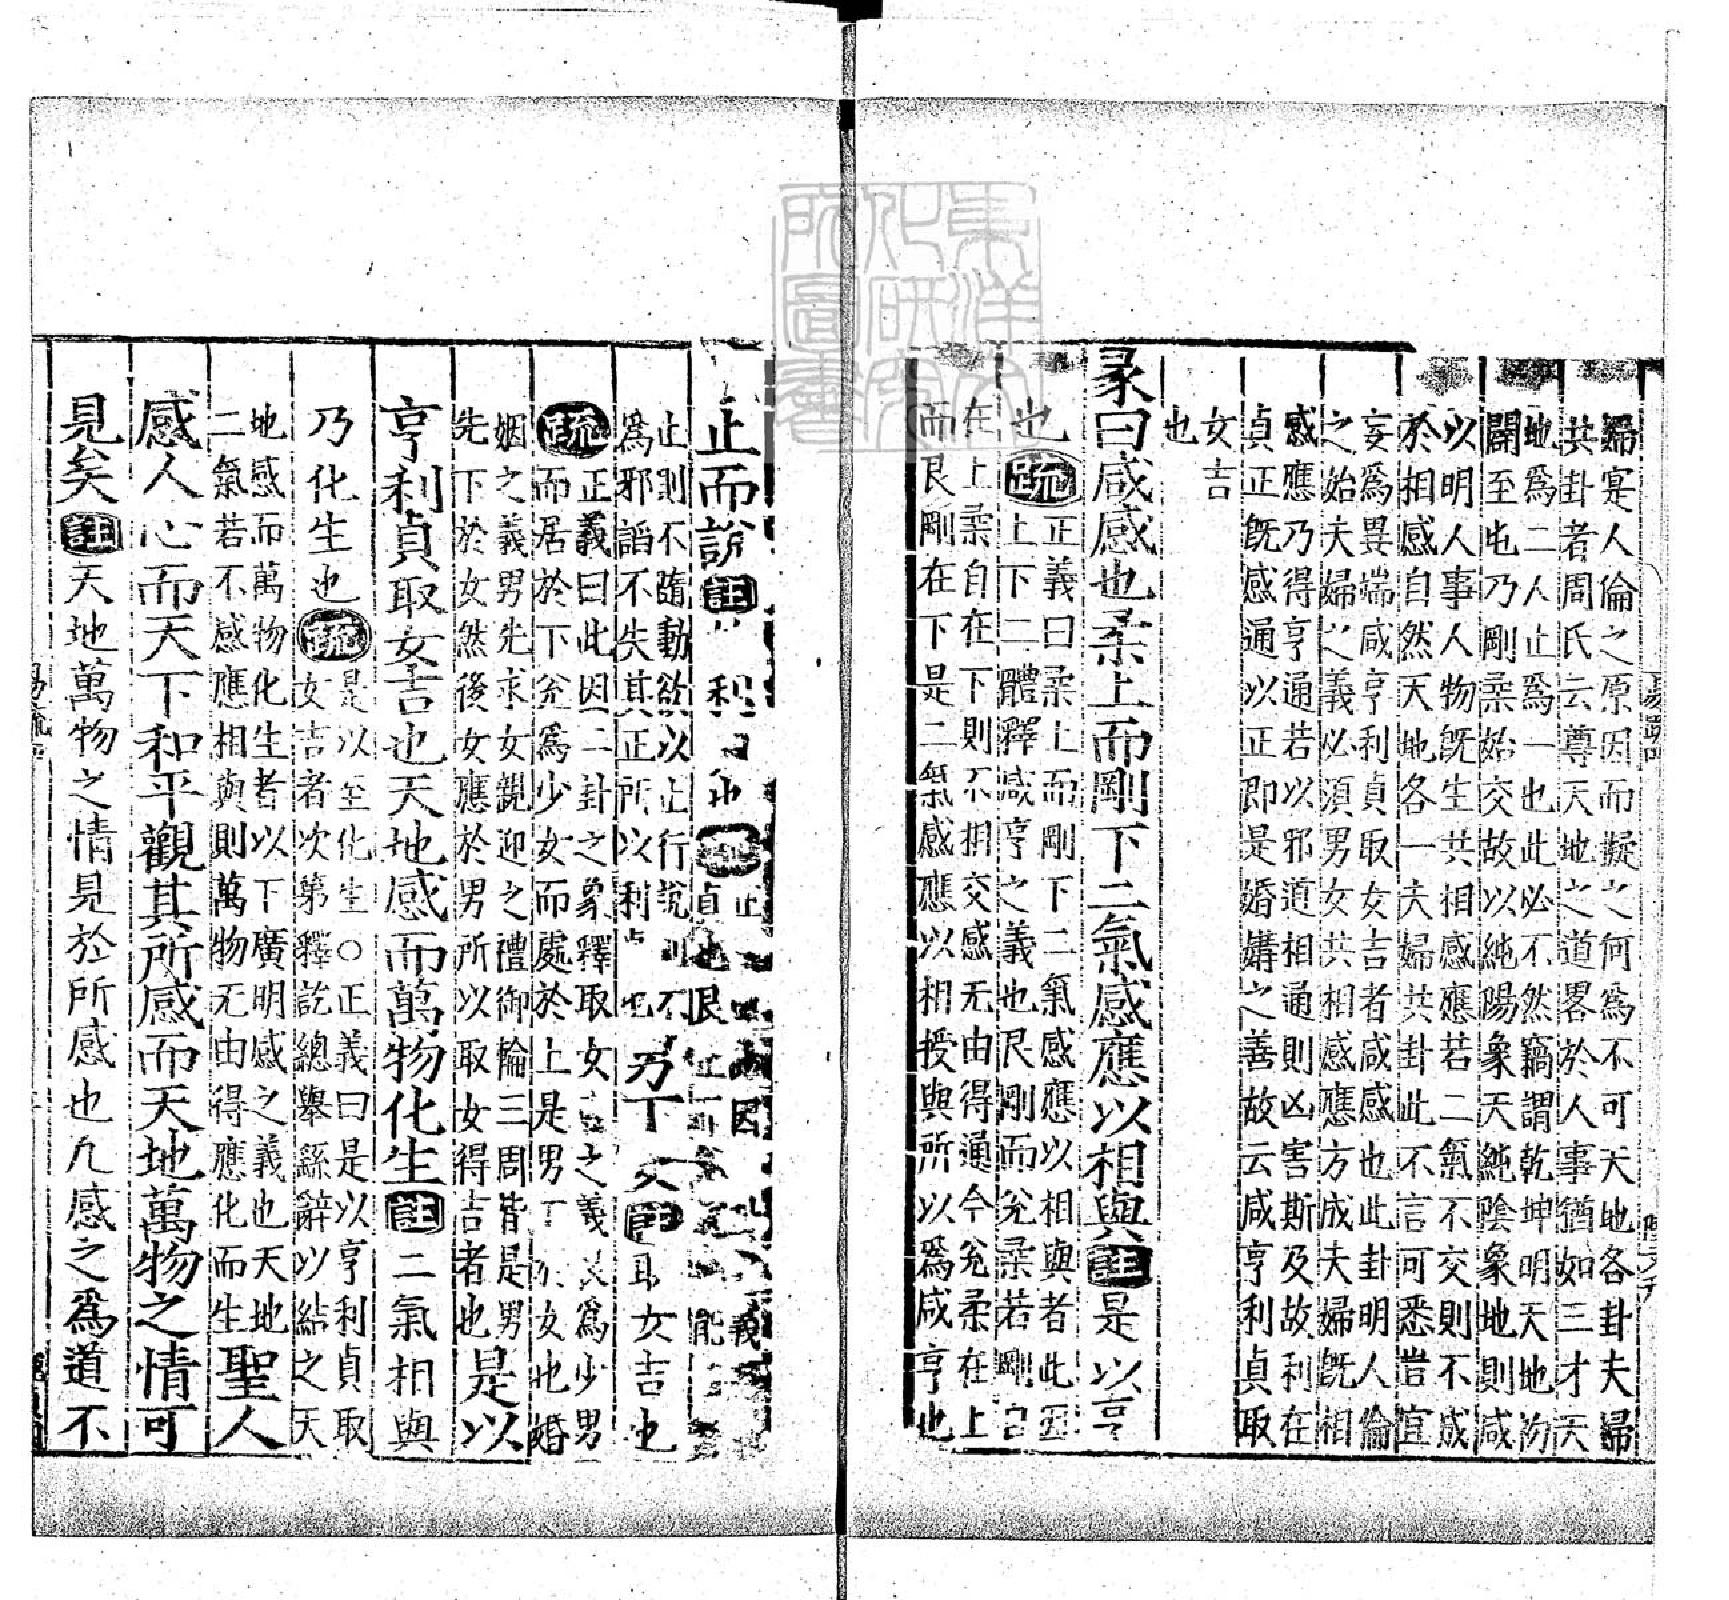 婦寔人倫之原因而擬之何爲不可天地各卦夫婦
共卦者周氏云尊天地之道畧於人事猶如三才天
地爲二人止爲一也此必不然竊謂乾坤明天地初
闢至屯乃剛柔始交故以純陽象天純陰象地則咸
以明人事人物旣生共相感應若二氣不交則不成
於相感自然天地各一夫婦共卦此不言可悉豈宜
妄爲異端咸亨利貞取女吉者咸感也此卦明人倫
之始夫婦之義必須男女共相感應方成夫婦旣相
感應乃得亨通若以邪道相通則凶害斯及故利在
貞正旣感通以正即是婚媾之善故云咸亨利貞取
女吉
也
彖曰咸感也柔上而剛下二氣感應以相與註是以亨
也疏正義曰柔上而剛下二氣感應以相與者此因
上下二體釋咸亨之義也艮剛而兊柔若剛自
在上柔自在下則不相交感无由得通今兊柔在上
而艮剛在下是二氣感應以相授與所以爲咸亨也
止而說註
利
也疏正
貞也艮止
因
義
能
止則不隨動欲以止行說則不
爲邪謟不失其正所以利貞也
男下女註取女吉也
疏正義曰此因二卦之象釋取女吉之義艮爲少男
而居於下兊爲少女而處於上是男下於女也婚
姻之義男先求女親迎之禮御輪三周皆是男
先下於女然後女應於男所以取女得吉者也是以
亨利貞取女吉也天地感而萬物化生註二氣相與
乃化生也疏是以至化生○正義曰是以亨利貞取
女吉者次第釋訖總舉繇辭以結之天
地感而萬物化生者以下廣明感之義也天地
二氣若不感應相與則萬物无由得應化而生聖人
感人心而天下和平觀其所感而天地萬物之情可
見矣註天地萬物之情見於所感也凢感之爲道不